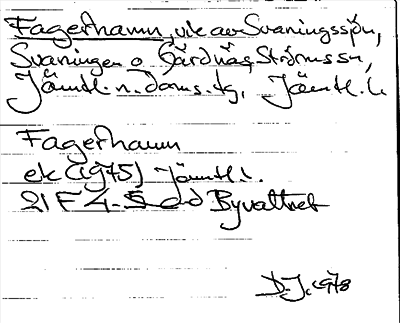 Fagerhamn, vik av Svaningssjön,
Svaningen o Gärdnäs, Ströms sn,
Jämtl. n. doms. tg, Jämtl. l.
Fagerhamn
ek (1975) Jämtl. l.
21 F 4-5 c d Byvattnet
D.J. 1978